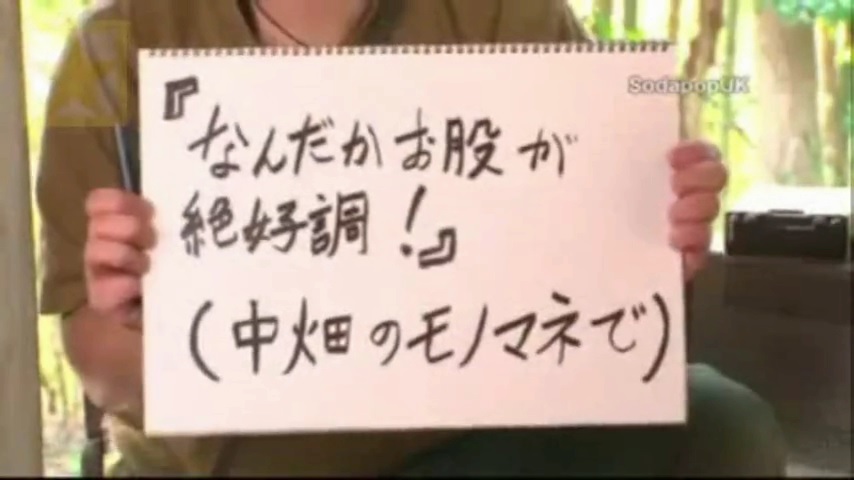 SodapopUK
『なんだかお股が
絶好調！』
(中畑のモノマネで)